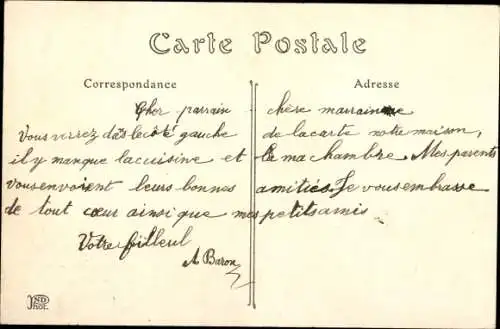 Carte Postale
Correspondance Adresse
Cher parrain chère marraine
Vous verrez dans le côté gauche de la carte notre maison,
il y manque la cuisine et la ma chambre. Mes parents
vous envoient leurs bonnes amitiés. Je vous embrasse
de tout cœur ainsi que mes petits amis
Votre filleul
A Baron
ND
Phot.